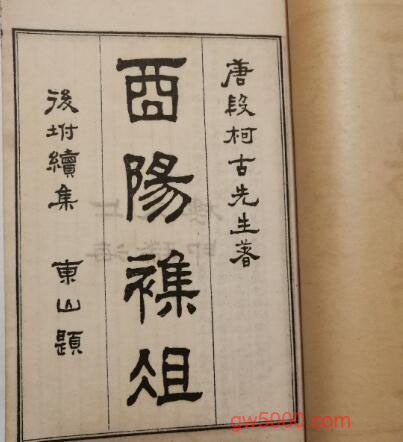 唐段柯古先生著
酉陽襍俎
後坿續集 東山題
gw5000.com